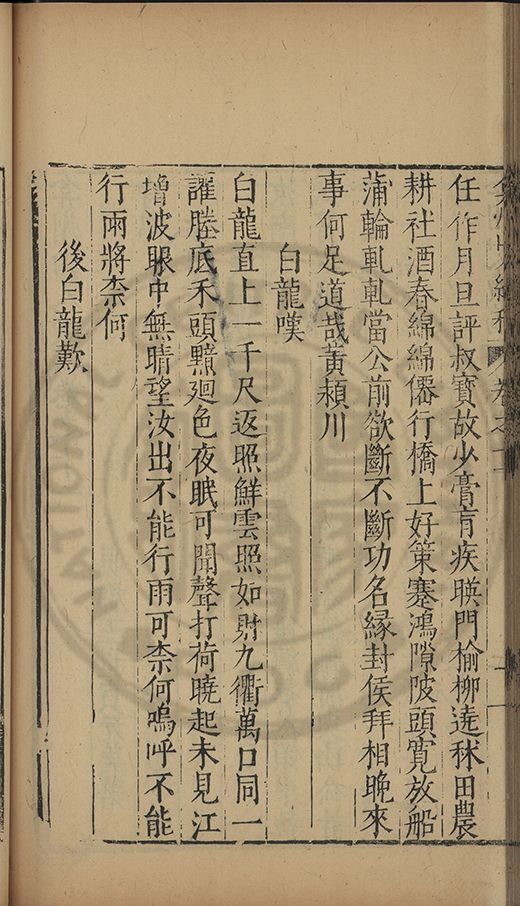 任作月旦評叔寶故少膏肓疾暎門榆柳遶秫田農
耕社酒春綿綿僊行橋上好策蹇鴻隙陂頭寬放船
蒲輪軋軋當公前欲斷不斷功名緣封侯拜相晚來
事何足道哉黃潁川
白龍嘆
白龍直上一千尺返照鮮雲照如射九衢萬口同一
讙塍底禾頭黯迴色夜眠可聞聲打荷曉起未見江
增波眼中無晴望汝出不能行雨可柰何嗚呼不能
行雨將柰何
後白龍歎